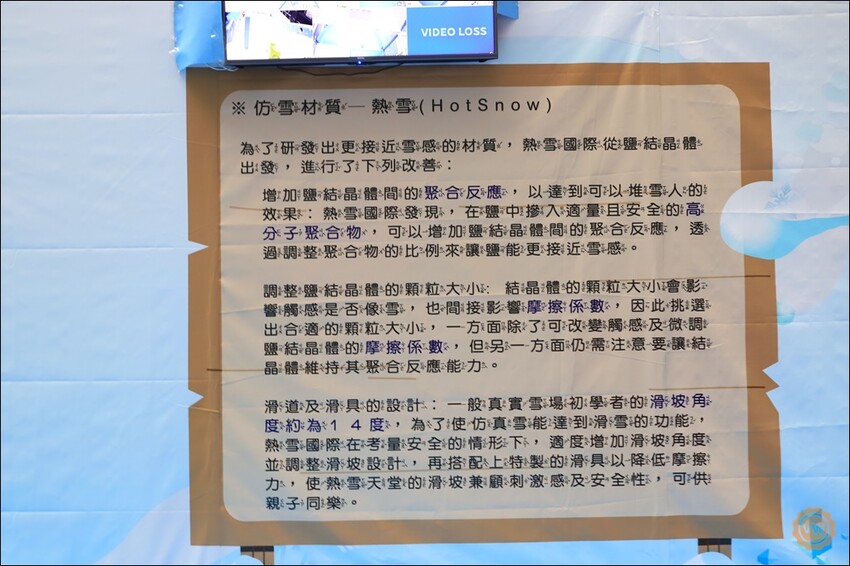 VIDEO LOSS
※仿雪材質─熱雪(HotSnow)
為了研發出更接近雪感的材質，熱雪國際從鹽結晶體
出發，進行了下列改善：
增加鹽結晶體間的聚合反應，以達到可以堆雪人的
效果：熱雪國際發現，在鹽中摻入適量且安全的高
分子聚合物，可以增加鹽結晶體間的聚合反應，透
過調整聚合物的比例來讓鹽能更接近雪感。
調整鹽結晶體的顆粒大小：結晶體的顆粒大小會影
響觸感是否像雪，也間接影響摩擦係數，因此挑選
出合適的顆粒大小，一方面除了可改變觸感及微調
鹽結晶體的摩擦係數，但另一方面仍需注意要讓結
晶體維持其聚合反應能力。
滑道及滑具的設計：一般真實雪場初學者的滑坡角
度約為14度，為了使仿真雪能達到滑雪的功能，
熱雪國際在考量安全的情形下，適度增加滑坡角度
並調整滑坡設計，再搭配上特製的滑具以降低摩擦
力，使熱雪天堂的滑坡兼顧刺激感及安全性，可供
親子同樂。